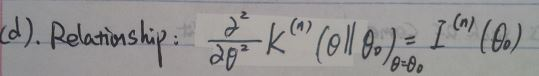 (d). Relationship: ∂²/∂θ² K⁽ⁿ⁾(θ‖θ₀)_θ=θ₀ = I⁽ⁿ⁾(θ₀)